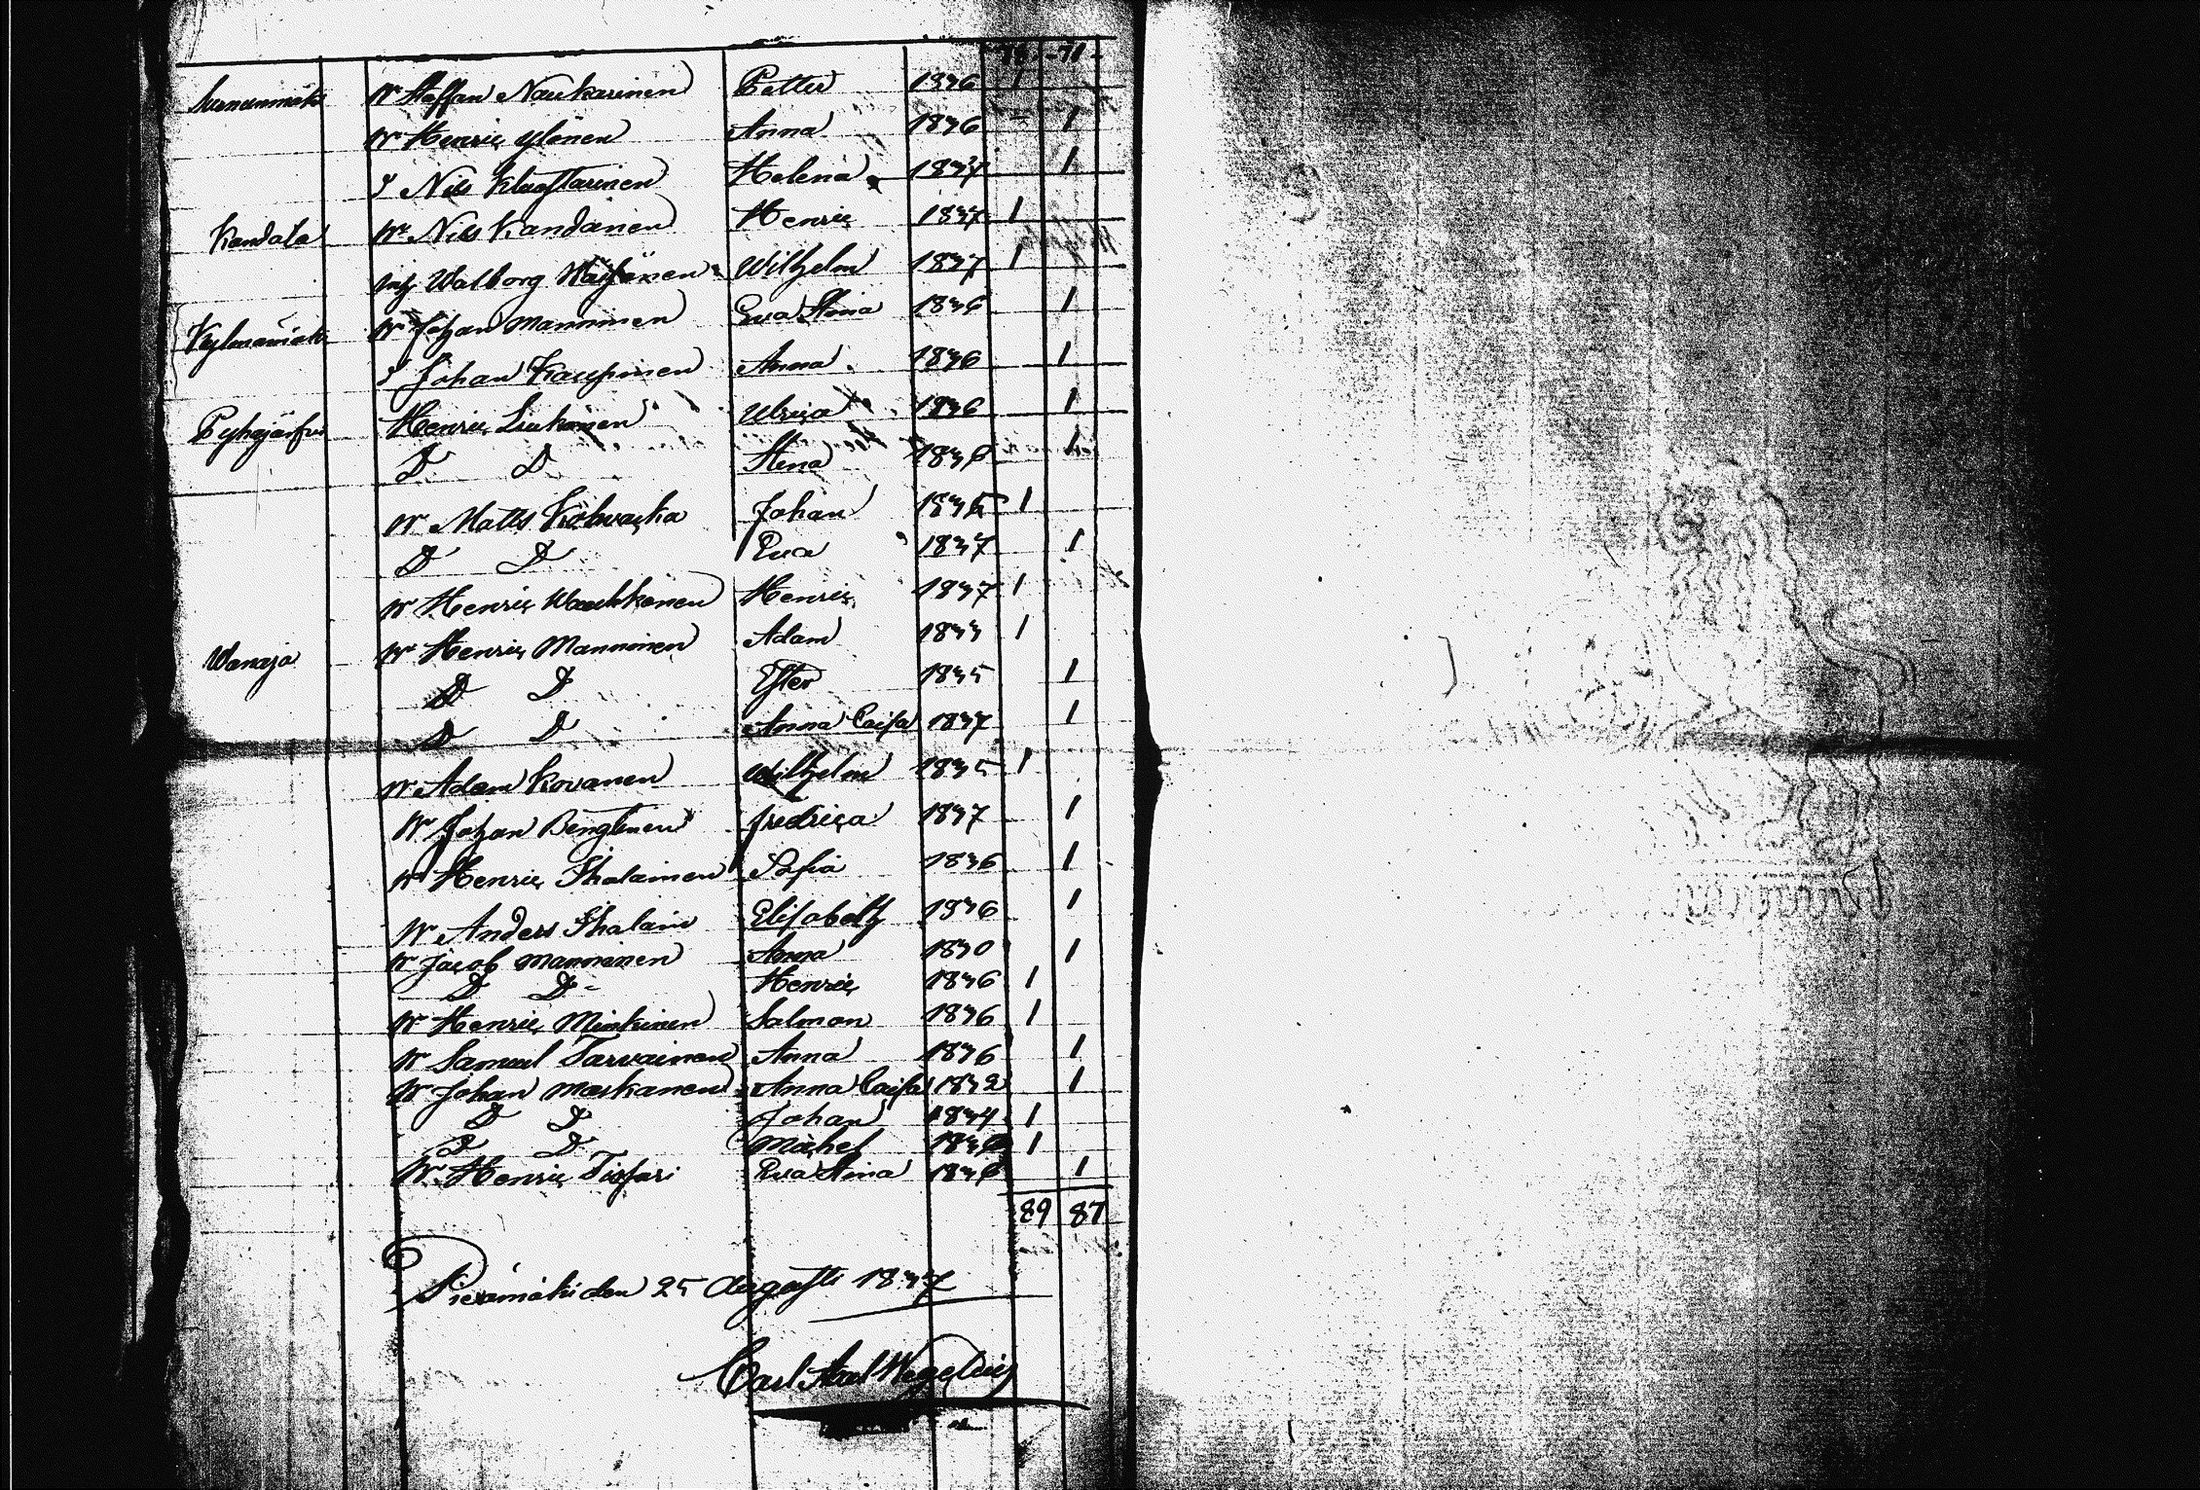 78 71
W Staffan Naukarinen Petter 1836 1
W Henric Ylönen Anna 1836 1
I Nils Helena 1837 1
Kandala W Nils Kandainen Henric 1837 1
Walborg Wilhelm 1837 1
Kylmämäki W Johan Manninen Eva Stina 1836 1
I Johan Kaupinen Anna 1836 1
Pyhäjärfvi Henric Liukonen Ulrica 1836 1
D D Stena 1836 1
W Matts Johan 1836 1
D D Eva 1837 1
W Henric Waukkonen Henric 1837 1
Wanaja W Henric Manninen Adam 1833 1
D D Ester 1835 1
D D Anna Caisa 1837 1
W Adam Kovanen Wilhelm 1835 1
W Johan Bengtinen Fredrica 1837 1
W Henric Ihalainen Sofia 1836 1
W Anders Ihalain Elisabeth 1836 1
W Jacob Manninen Anna 1830 1
D D Henric 1836 1
W Henric Minkinen Salmon 1836 1
W Samuel Tarvainen Anna 1836 1
W Johan Moskanen Anna Caisa 1832 1
D D Johan 1834 1
D D Michel 1836 1
W Henric Eva Stina 1836 1
89 87
den 25 Augusti 1837
Carl Axel Wegelius